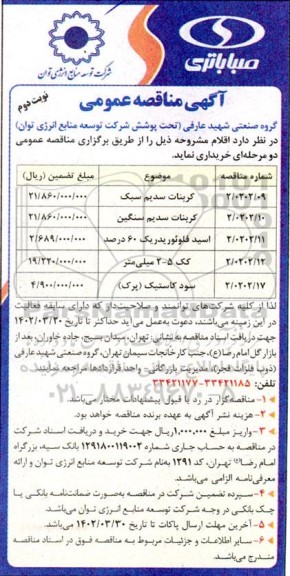 صبا باتری
شرکت توسعه منابع انرژی توان
آگهی مناقصه عمومی
نوبت دوم
گروه صنعتی شهید عارفی (تحت پوشش شرکت توسعه منابع انرژی توان)
در نظر دارد اقلام مشروحه ذیل را از طریق برگزاری مناقصه عمومی
دو مرحله‌ای خریداری نماید.
شماره مناقصه موضوع مبلغ تضمین (ریال)
۲/۰۲۰۲/۰۹ کربنات سدیم سبک ۲۱/۸۶۰/۰۰۰/۰۰۰
۲/۰۲۰۲/۱۰ کربنات سدیم سنگین ۲۱/۸۶۰/۰۰۰/۰۰۰
۲/۰۲۰۲/۱۱ اسید فلوئوریدریک ۶۰ درصد ۲/۶۸۹/۰۰۰/۰۰۰
۲/۰۲۰۲/۱۲ کک ۵-۲ میلی‌متر ۱۹/۲۲۰/۰۰۰/۰۰۰
۲/۰۲۰۲/۱۷ سود کاستیک (پرک) ۴/۹۰۰/۰۰۰/۰۰۰
لذا از کلیه شرکت‌های توانمند و صلاحیت‌دار که دارای سابقه فعالیت
در این زمینه می‌باشند، دعوت به‌عمل می آید حداکثر تا تاریخ ۱۴۰۲/۰۳/۲۰
جهت دریافت اسناد مناقصه به نشانی: تهران، میدان بسیج، جاده خاوران، بعد از
بازار گل امام رضا(ع)، جنب کارخانجات سیمان تهران، گروه صنعتی شهید عارفی
(ذوب فلزات فجر)، مدیریت بازرگانی - واحد قراردادها، مراجعه نمایند.
تلفن: ۳۳۴۲۱۱۸۵-۳۳۴۲۱۱۷۷
۱- مناقصه‌گزار در رد یا قبول پیشنهادات مختار می‌باشد.
۲- هزینه نشر آگهی به عهده برنده مناقصه خواهد بود.
۳- واریز مبلغ ۱،۰۰۰،۰۰۰ ریال جهت خرید و دریافت اسناد شرکت
در مناقصه به حساب جاری شماره ۱۲۹۱۸۰۰۱۱۹۰۰۲ بانک سپه، بزرگراه
امام رضا(ع) تهران، کد ۱۲۹۱ به‌نام شرکت توسعه منابع انرژی توان و ارائه
معرفی‌نامه الزامی می‌باشد.
۴- سپرده تضمین شرکت در مناقصه به‌صورت ضمانت‌نامه بانکی یا
چک بانکی در وجه شرکت توسعه منابع انرژی توان می‌باشد.
۵- آخرین مهلت ارسال پاکات تا تاریخ ۱۴۰۲/۰۳/۳۰ می‌باشد.
۶- سایر اطلاعات و جزئیات مربوط به مناقصه فوق در اسناد مناقصه
مندرج می‌باشد.